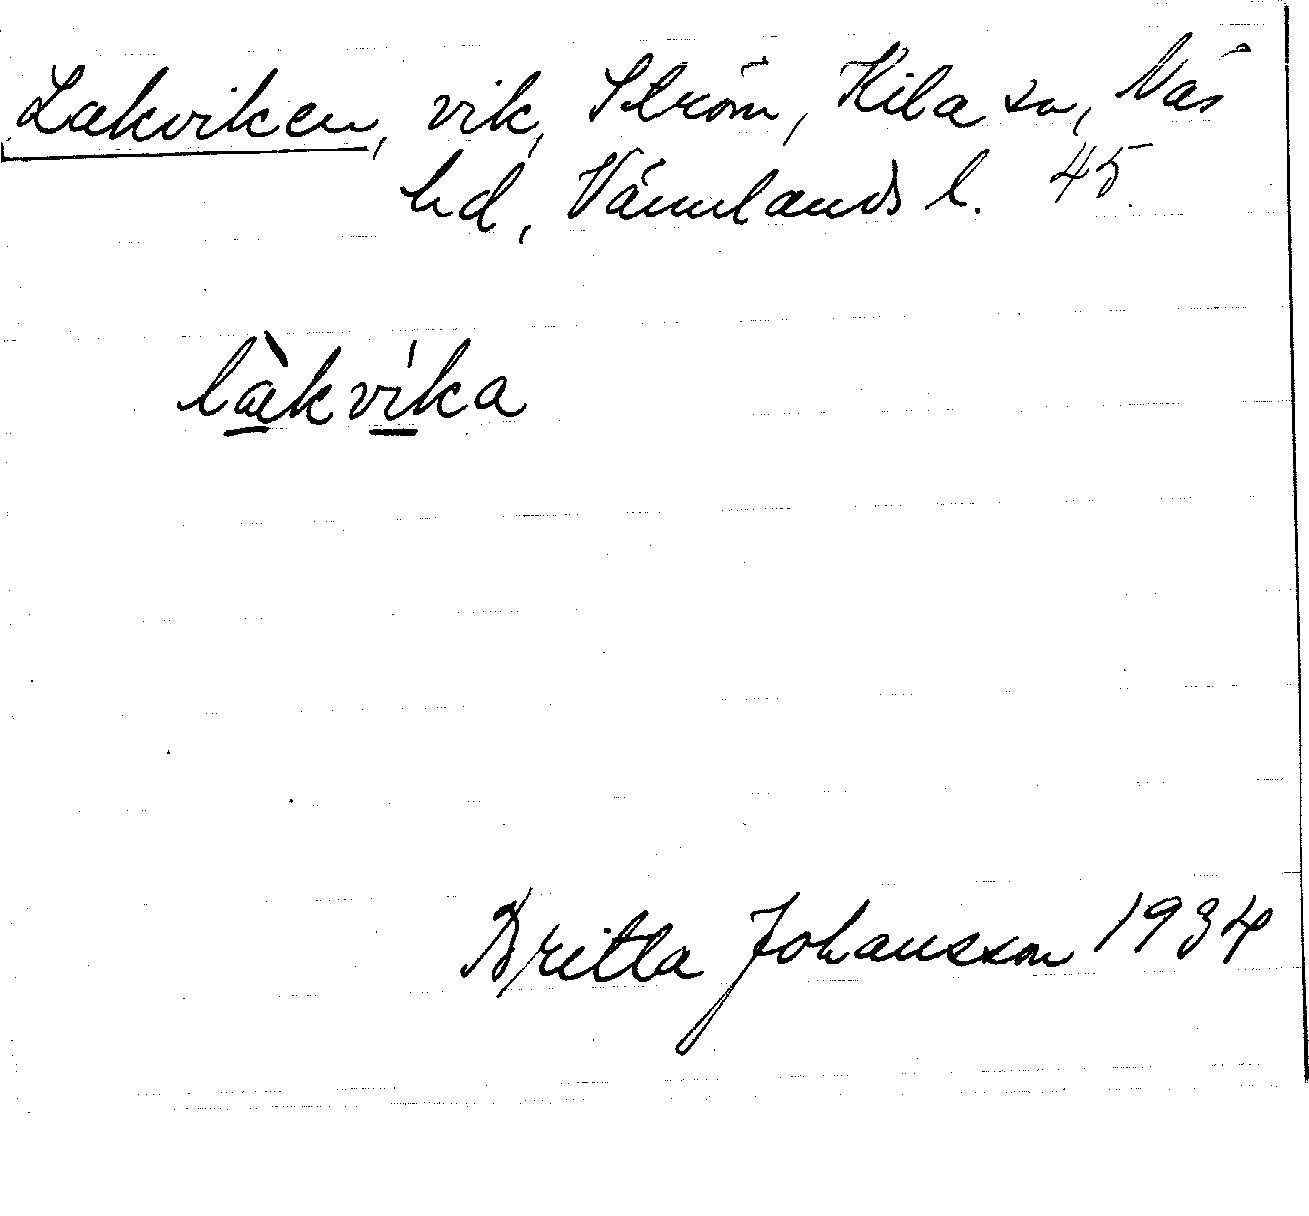 Lakviken, vik, Ström, Kila sn, Näs
hd, Värmlands l. 45.
làkvíka
Britta Johansson 1934